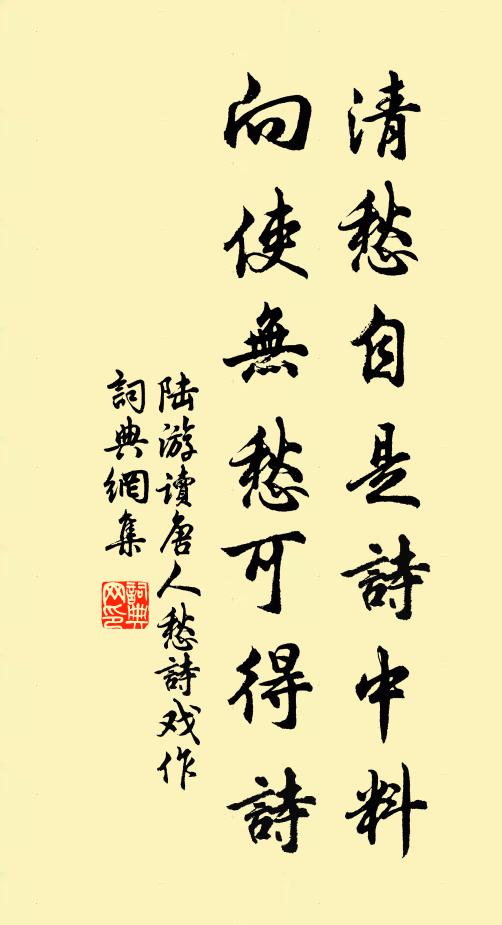 清愁自是詩中料
向使無愁可得詩
陆游讀唐人愁詩戏作
詞典網集
詞典網印